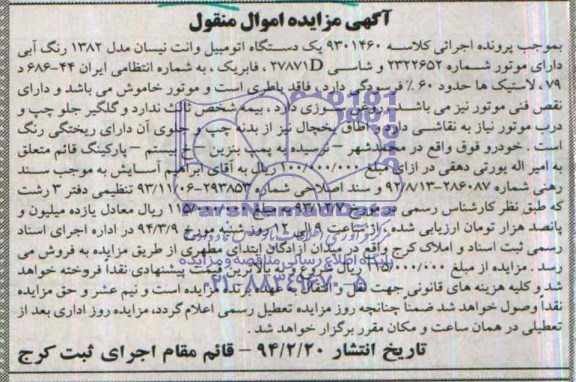 آگهی مزایده اموال منقول
بموجب پرونده اجرائی کلاسه ۹۳۰۱۴۶۰ یک دستگاه اتومبیل وانت نیسان مدل ۱۳۸۲ رنگ آبی
دارای موتور شماره ۲۳۲۲۶۵۲ و شاسی ۲۷۸۷۱D ، فابریک ، به شماره انتظامی ایران ۴۴-۶۸۶ د
۷۹، لاستیک ها حدود ۶۰٪ فرسودگی دارد، فاقد باطری است و موتور خاموش می باشد و دارای
نقص فنی موتور نیز می باشد وزی دارد ، بیمه شخص ثالث ندارد و گلگیر جلو چپ و
درب موتور نیاز به نقاشی دارد و اطاق یخچال نیز از بدنه چپ و جلوی آن دارای ریختگی رنگ
است . خودرو فوق واقع در محمدشهر – نرسیده به پمپ بنزین – خ بیستم – پارکینگ قائم متعلق
به امیر اله پورتی دهقی در ازای مبلغ ۱۰۰/۰۰۰/۰۰۰ ریال به آقای ابراهیم آسایش به موجب سند
رهنی شماره ۲۸۶۰۸۷-۹۲/۸/۱۳ و سند اصلاحی شماره ۲۹۳۸۵۳-۹۳/۱۱/۰۶ تنظیمی دفتر ۳ رشت
که طبق نظر کارشناس رسمی به مورخ ۹۳/۱۲/۷ مبلغ ۱۱۵/۰۰۰/۰۰۰ ریال معادل یازده میلیون و
پانصد هزار تومان ارزیابی شده ، از ساعت ۹ الی ۱۲ روز شنبه مورخ ۹۴/۳/۹ در اداره اجرای اسناد
رسمی ثبت اسناد و املاک کرج واقع در میدان آزادگان ابتدای مطهری از طریق مزایده به فروش می
رسد . مزایده از مبلغ ۱۱۵/۰۰۰/۰۰۰ ریال شروع و به بالاترین قیمت پیشنهادی نقداً فروخته خواهد
شد و کلیه هزینه های قانونی جهت نقل و انتقال به عهده برنده مزایده است و نیم عشر و حق مزایده
نقداً وصول خواهد شد ضمناً چنانچه روز مزایده تعطیل رسمی اعلام گردد، مزایده روز اداری بعد از
تعطیلی در همان ساعت و مکان مقرر برگزار خواهد شد.
تاریخ انتشار ۹۴/۲/۲۰ – قائم مقام اجرای ثبت کرج
ParsNamadData
پایگاه اطلاع رسانی مناقصه و مزایده
۰۲۱-۸۸۳۴۹۶۷۰-۵